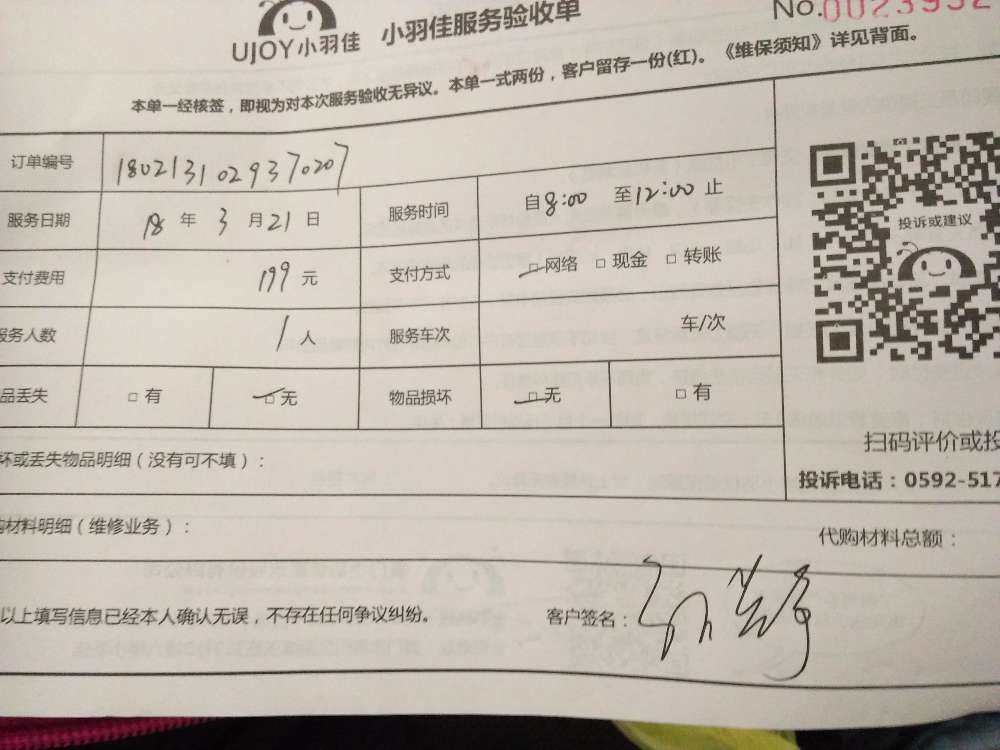 UJOY小羽佳 小羽佳服务验收单 No.0023952
本单一经核签，即视为对本次服务验收无异议。本单一式两份，客户留存一份(红)。《维保须知》详见背面。
订单编号 1802131029370207
服务日期 18 年 3 月 21 日 服务时间 自8:00 至12:00止
支付费用 199 元 支付方式 □网络 □现金 □转账
服务人数 1人 服务车次 车/次
品丢失 □有 □无 物品损坏 □无 □有
投诉或建议
扫码评价或投
投诉电话：0592-517
坏或丢失物品明细（没有可不填）：
购材料明细（维修业务）： 代购材料总额：
以上填写信息已经本人确认无误，不存在任何争议纠纷。 客户签名：